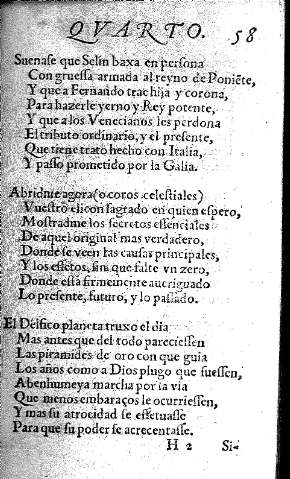 QVARTO. 58
Suenase que Selin baxa en persona
Con gruessa armada al reyno de Poniẽte,
Y que a Fernando trae hija y corona,
Para hazerle yerno y Rey potente,
Y que a los Venecianos les perdona
El tributo ordinario, y el presente,
Que tiene trato hecho con Italia,
Y passo prometido por la Galia.
Abridme agora (o coros celestiales)
Vuestro elicon sagrado en quien espero,
Mostradme los secretos essenciales
De aquel original mas verdadero,
Donde se veen las causas principales,
Y los effetos, sin que falte vn zero,
Donde esta firmemente aueriguado
Lo presente, futuro, y lo passado.
El Delfico planeta truxo el dia
Mas antes que del todo pareciessen
Las piramides de oro con que guia
Los años como a Dios plugo que fuessen,
Abenhumeya marcha por la via
Que menos embaraços le ocurriessen,
Y mas su atrocidad se effetuasse
Para que su poder se acrecentasse.
H 2 Si-